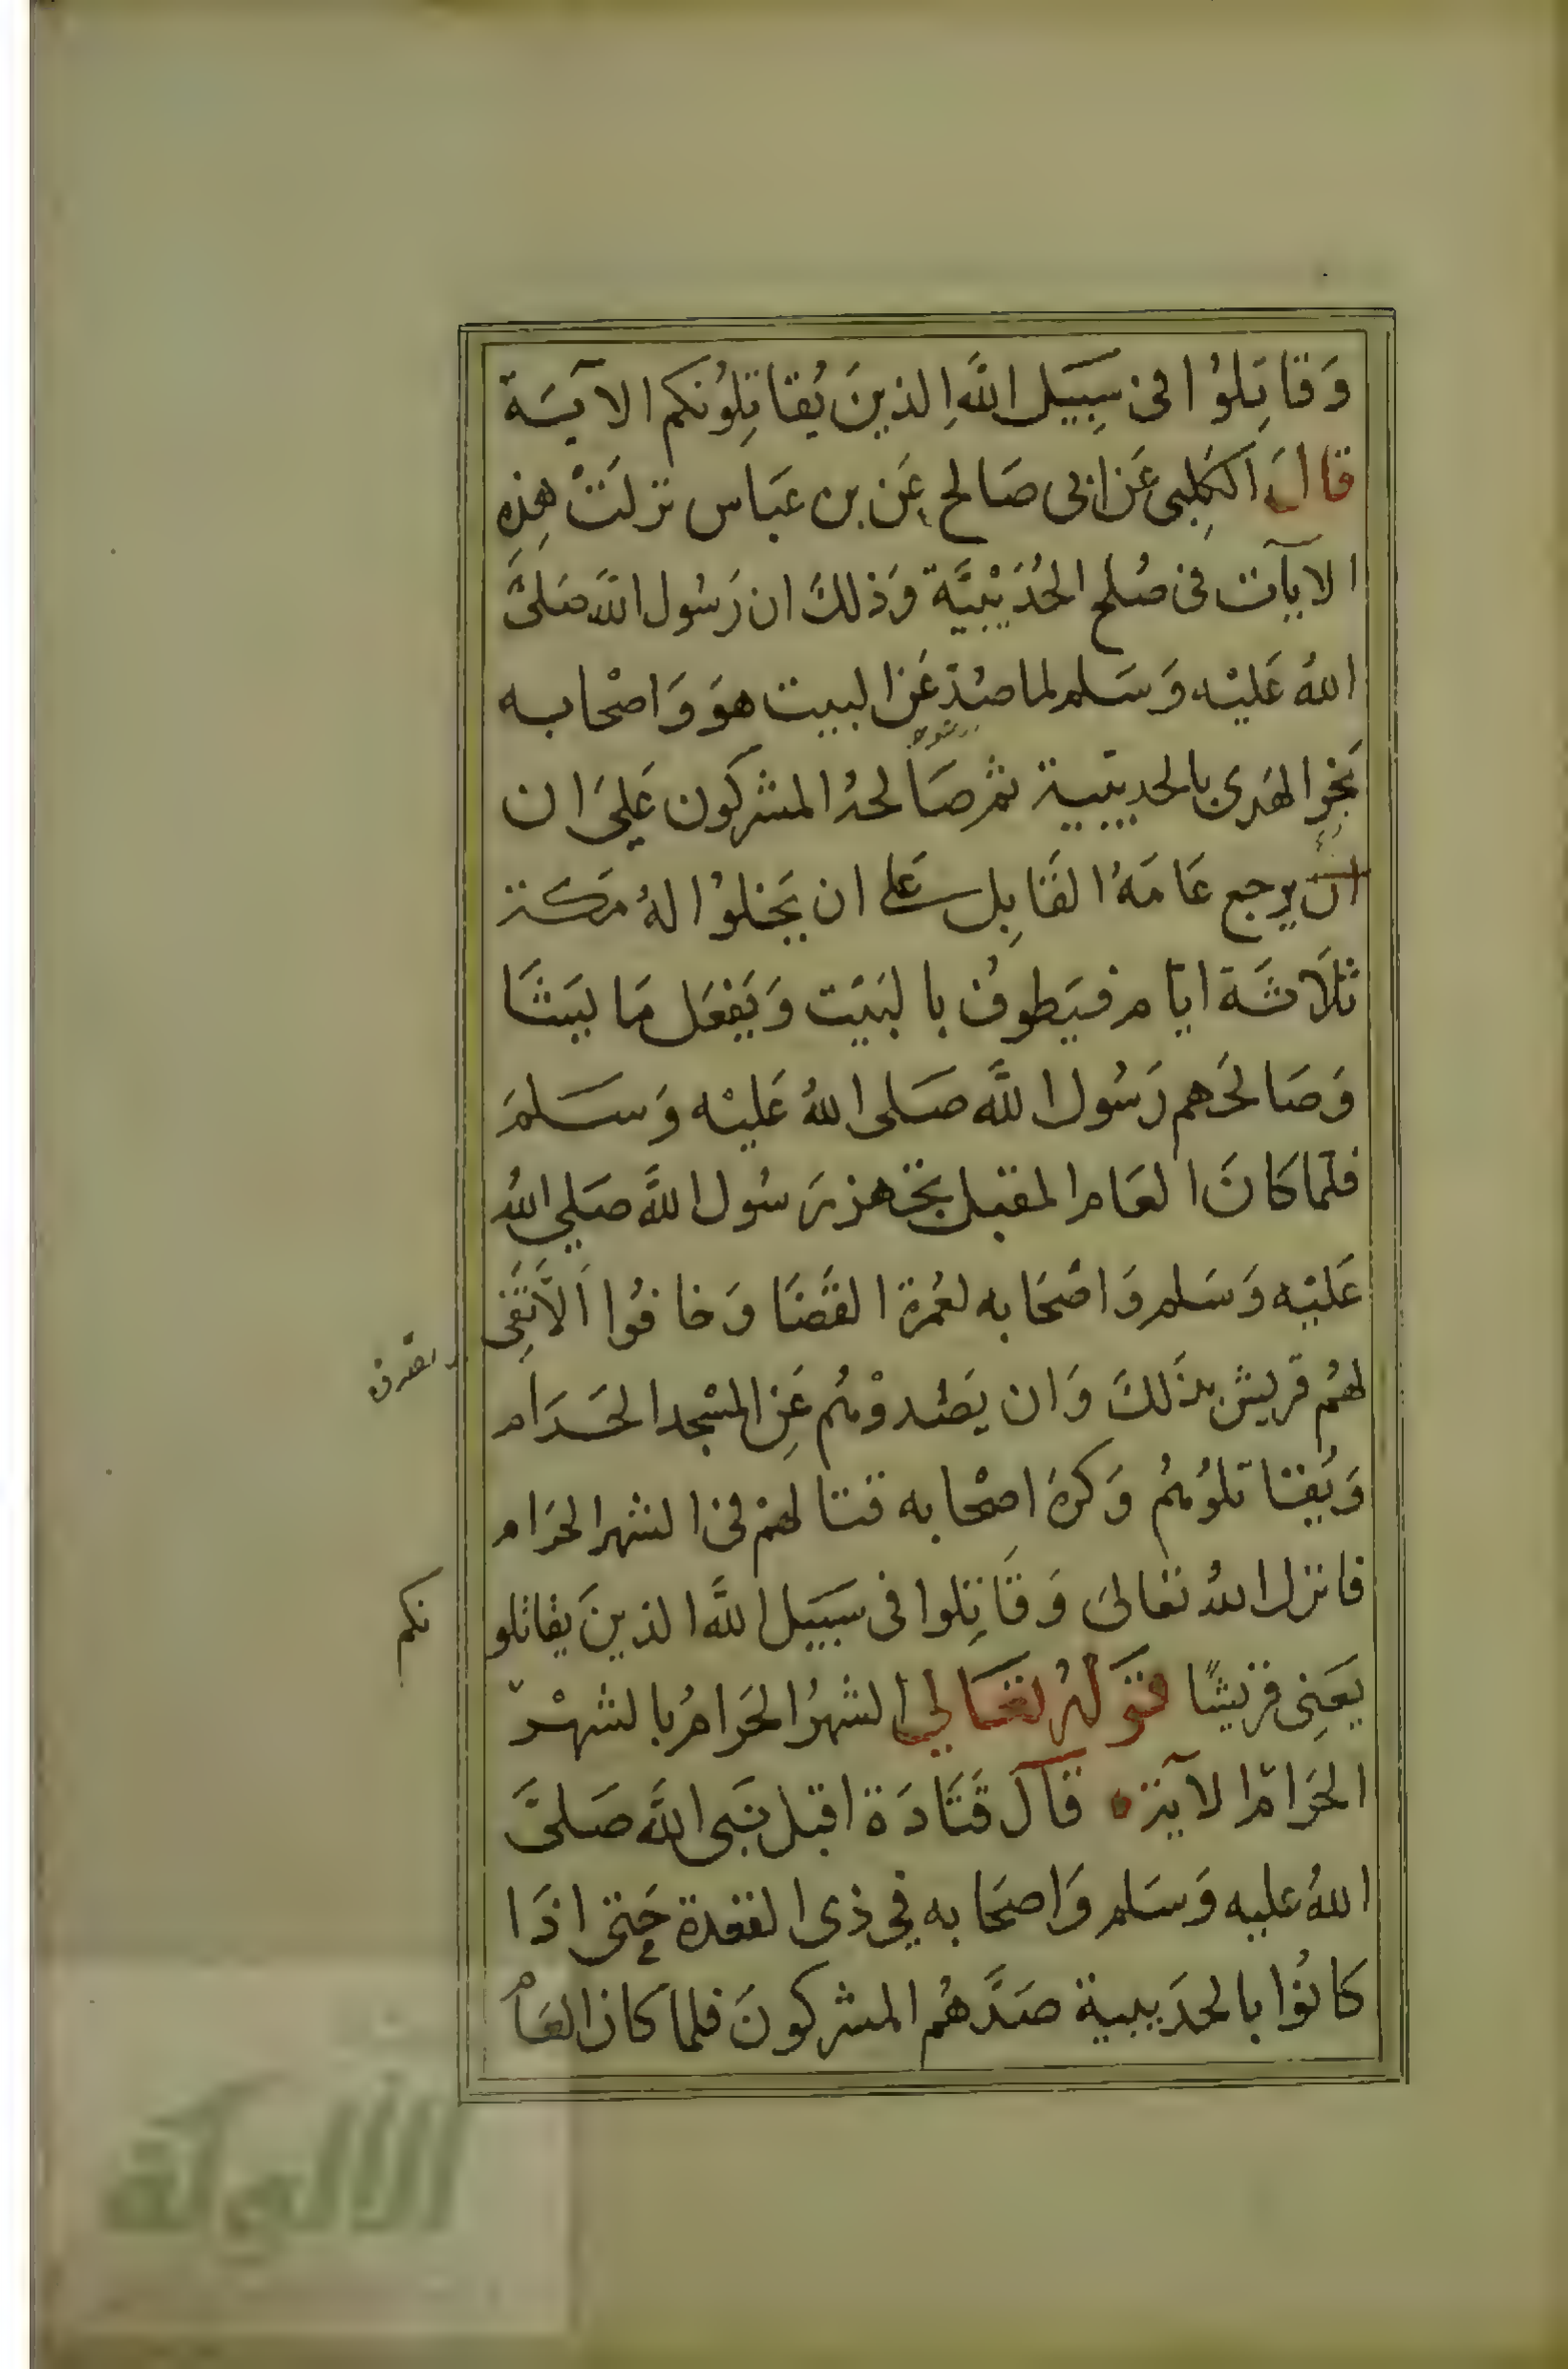 وَقَاتِلُوا فى سِبَيَل اللَّهِ الذينَ يُقَاتِلُونكم الآيَة
قال الكَلِبى عَن ابى صَالح عَن بن عبَاس نزلَتْ هَذِهِ
الايآت فى صُلح الحُدَيْبيَّة وَذلكَ ان رَسُول الله صَلىَّ
اللهُ عَليْه وَسَلم لما صُدّ عَن البيت هوَ وَاصْحابه
نحَر الهَدى بالحديبية ثم صَالحهُ المشركون عَلىَ ان
ان يرجع عَامَهُ القَابِل عَلى ان يَخلوْا لهُ مَكة
ثلَاثَة ايّام فيَطوفُ بالبَيْت وَيَفعَل مَا يَشَا
وَصَالحَهم رَسُول اللَّه صَلى اللهُ عَليْه وَسَلمَ
فلمّا كَانَ العَام المقبل تجَهز رَسُول اللَّه صَلي اللهُ
عَليْه وَسَلم وَاصْحَابه لعُمرة القَضَا وَخافُوا اَلاَّ تَفِى
لهُم قريش بذَلكَ وَان يَصُدوْهُم عَنِ المسْجد الحَرَام
وَيُقَاتلوُهُم وَكرهَ اصْحابه قتالهمْ فى الشهر الحَرَام
فانزل اللهُ تعَالىَ وَقَاتِلوا فى سَبيَل اللَّه الذينَ يقاتلو
نكم
يَعنِى قريشًا قوَلهُ تعَالي الشهرُ الحَرَامُ بالشهْر
الحَرَام الآية قآل قَتَادَة اقبَل نَبى اللَّه صَلىَّ
اللهُ عليه وَسَلم وَاصحَابه في ذى القعدة حَتى اذَا
كانُوا بالحدَيبية صَدَّهُم المشركونَ فلما كان العَام
الألوكة